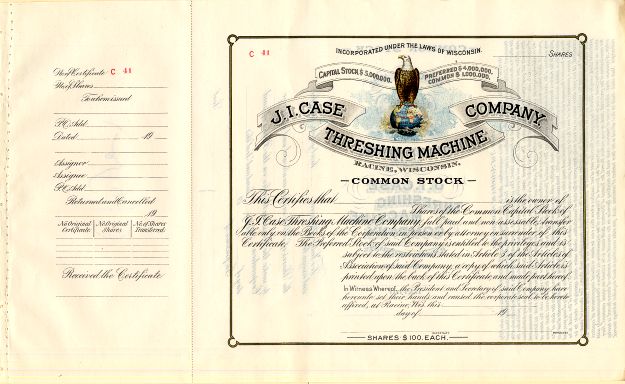 No. of Certificate C 44
No. of Shares
To whom issued
P.O. Add.
Dated 19
Assignor
Assignee
P.O. Add.
Returned and Cancelled
19
No. Original Certificate No. Original Shares No. of Shares Transferred
Received the Certificate
C 44
INCORPORATED UNDER THE LAWS OF WISCONSIN.
SHARES
CAPITAL STOCK $5,000,000.
PREFERRED $4,000,000.
COMMON $1,000,000.
J. I. CASE COMPANY
THRESHING MACHINE
RACINE, WISCONSIN.
COMMON STOCK
This Certifies that is the owner of
Shares of the Common Capital Stock of
J. I. Case Threshing Machine Company, full paid and non assessable, transfer-
able only on the Books of the Corporation in person or by attorney on surrender of this
Certificate. The Preferred Stock of said Company is entitled to the privileges and is
subject to the restrictions stated in Article 5 of the Articles of
Association of said Company, a copy of which said Article is
printed upon the back of this Certificate and made part hereof.
In Witness Whereof, the President and Secretary of said Company have
hereunto set their hands and caused the corporate seal to be hereto
affixed, at Racine, Wis. this
day of 19
SECRETARY
PRESIDENT
SHARES $100. EACH.